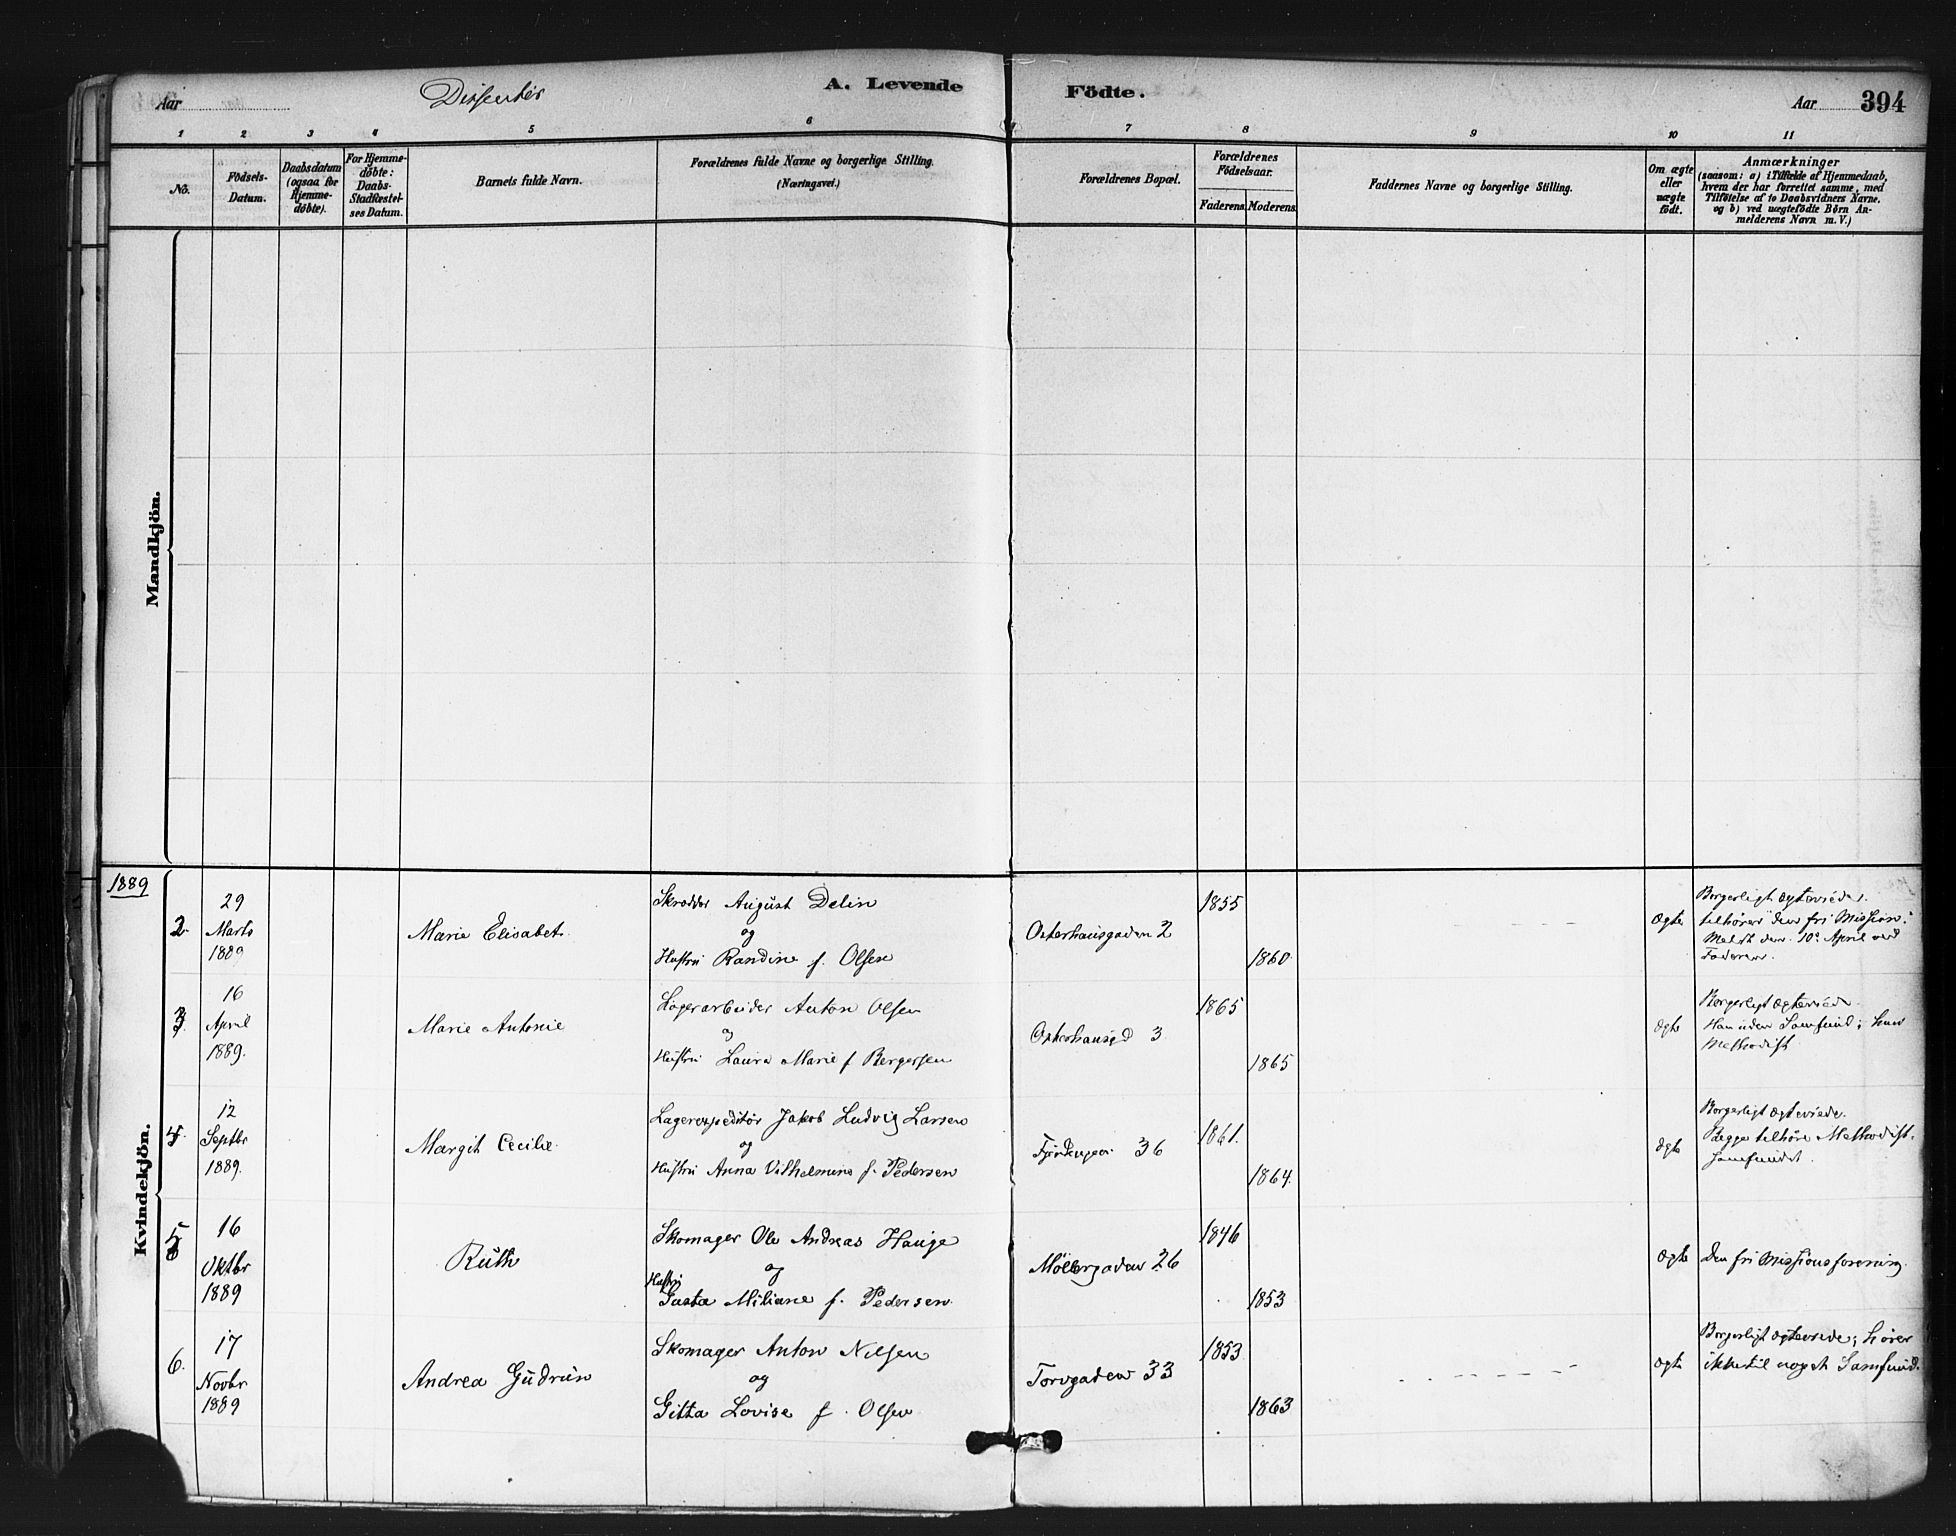 Aar
Dissenter
A. Levende
Födte.
Aar
394
1 2 3 4 5 6 7 8 9 10 11
No.
Födsels-
Datum.
Daabsdatum
(ogsaa for
Hjemme-
døbte).
For Hjemme-
døbte:
Daabs-
Stadfæstel-
ses Datum.
Barnets fulde Navn.
Forældrenes fulde Navne og borgerlige Stilling.
(Næringsvei.)
Forældrenes Bopæl.
Forældrenes
Födselsaar.
Faderens. Moderens.
Faddernes Navne og borgerlige Stilling.
Om ægte
eller
uægte
født.
Anmærkninger
(saasom: a) i Tilfælde af Hjemmedaab,
hvem der har forrettet samme, med
Tilføielse af to Daabsvidners Navne.
og b) ved uægtefödte Börn An-
melderens Navn m. V.)
Mandkjön.
Kvindekjön.
1889
2.
29
Marts
1889
Marie Elisabet
Skrædder August Delin
og
Hustru Randine f. Olsen
Osterhausgaden 2
1855
1860.
Ægte
Borgerligt ægteviede.
tilhører "den fri Mission."
Meldt den 10de April ved
Faderen.
3.
16
April
1889.
Marie Antonie
Lagerarbeider Anton Olsen
og
Hustru Laura Marie f Bergersen
Osterhausgd 3
1865
1865
Ægte
Borgerligt ægteviede.
Han uden Samfund; hun
Methodist
4.
12
Septbr
1889.
Margit Cecilie
Lagerexpeditör Jakob Ludvig Larsen
og
Hustru Anna Vilhelmine f. Pedersen
36
1861.
1864.
Ægte
Borgerligt ægteviede.
Begge tilhøre Methodist-
samfundet.
5
16
Oktbr
1889
Ruth
Skomager Ole Andreas Hauge
og
Hustru
Gusta Miliane f. Pedersen
Møllergaden 26
1846
1853
Ægte
Den fri Missionsforening.
6.
17
Novbr
1889
Andrea Gudrun
Skomager Anton Nilsen
og
Gitta Lovise f. Olsen
Torvgaden 33
1853
1863
Ægte
Borgerligt ægteviede; hører
ikke til noget Samfund.